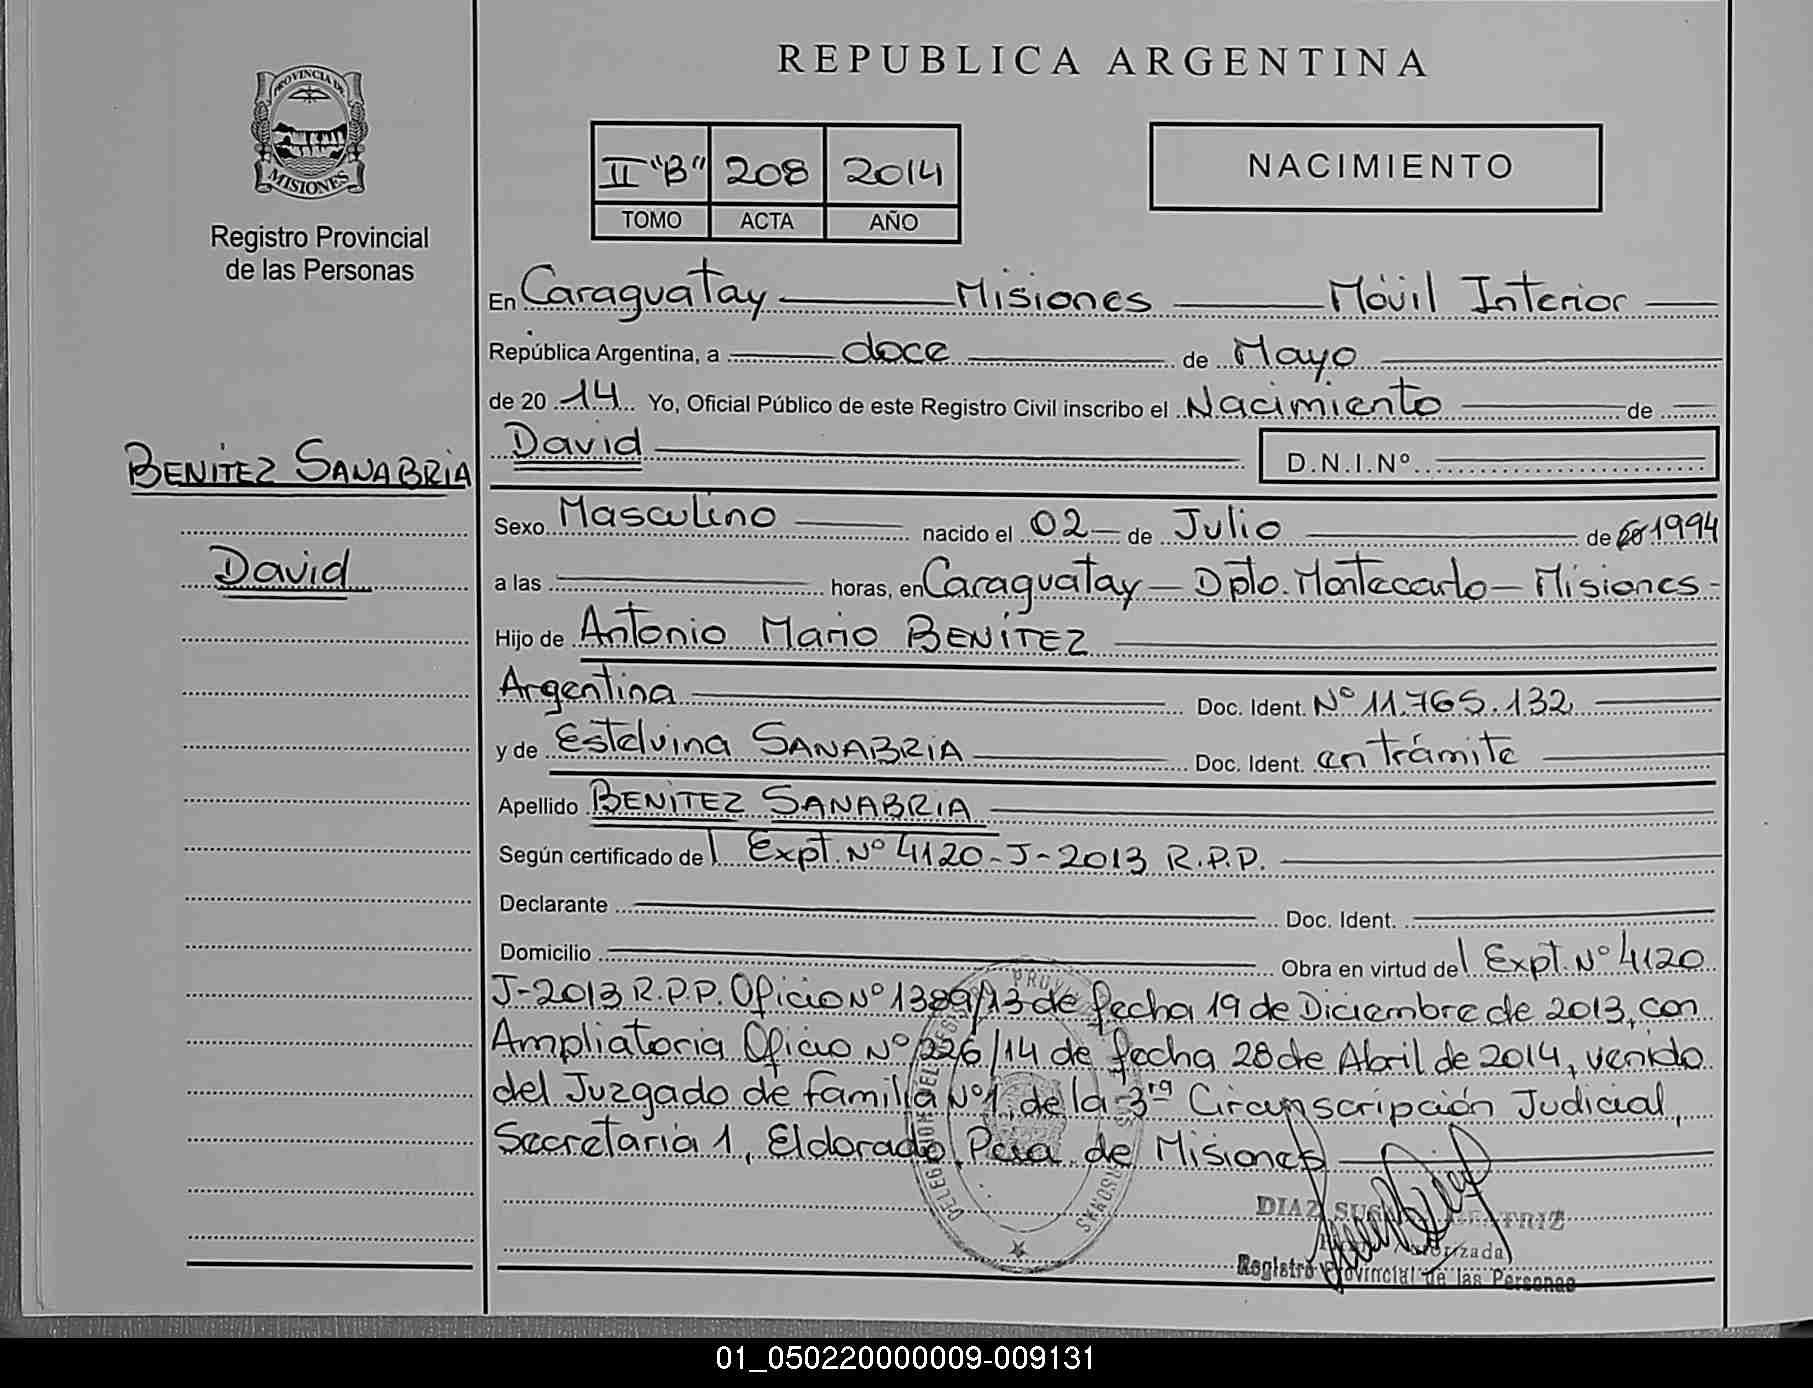 REPUBLICA ARGENTINA
PROVINCIA DE
MISIONES
Registro Provincial
de las Personas
II "B" 208 2014
TOMO ACTA AÑO
NACIMIENTO
En Caraguatay Misiones Móvil Interior
República Argentina, a doce de Mayo
de 20 14 Yo, Oficial Público de este Registro Civil inscribo el Nacimiento de
David D.N.I.Nº
BENÍTEZ SANABRIA
David
Sexo Masculino nacido el 02 de Julio de 20 1994
a las horas, en Caraguatay - Dpto. Montecarlo - Misiones -
Hijo de Antonio Mario BENÍTEZ
Argentina Doc. Ident. Nº 11.765.132
y de Estelvina SANABRIA Doc. Ident. en trámite
Apellido BENÍTEZ SANABRIA
Según certificado del Expt. Nº 4120-J-2013 R.P.P.
Declarante Doc. Ident.
Domicilio Obra en virtud del Expt. Nº 4120
J-2013 R.P.P. Oficio Nº 1389/13 de fecha 19 de Diciembre de 2013, con
Ampliatoria Oficio Nº 226/14 de fecha 28 de Abril de 2014, venido
del Juzgado de Familia Nº1, de la 3ra Circunscripción Judicial,
Secretaría 1, Eldorado, Pcia de Misiones
DIAZ
Registro Provincial de las Personas
01_050220000009-009131